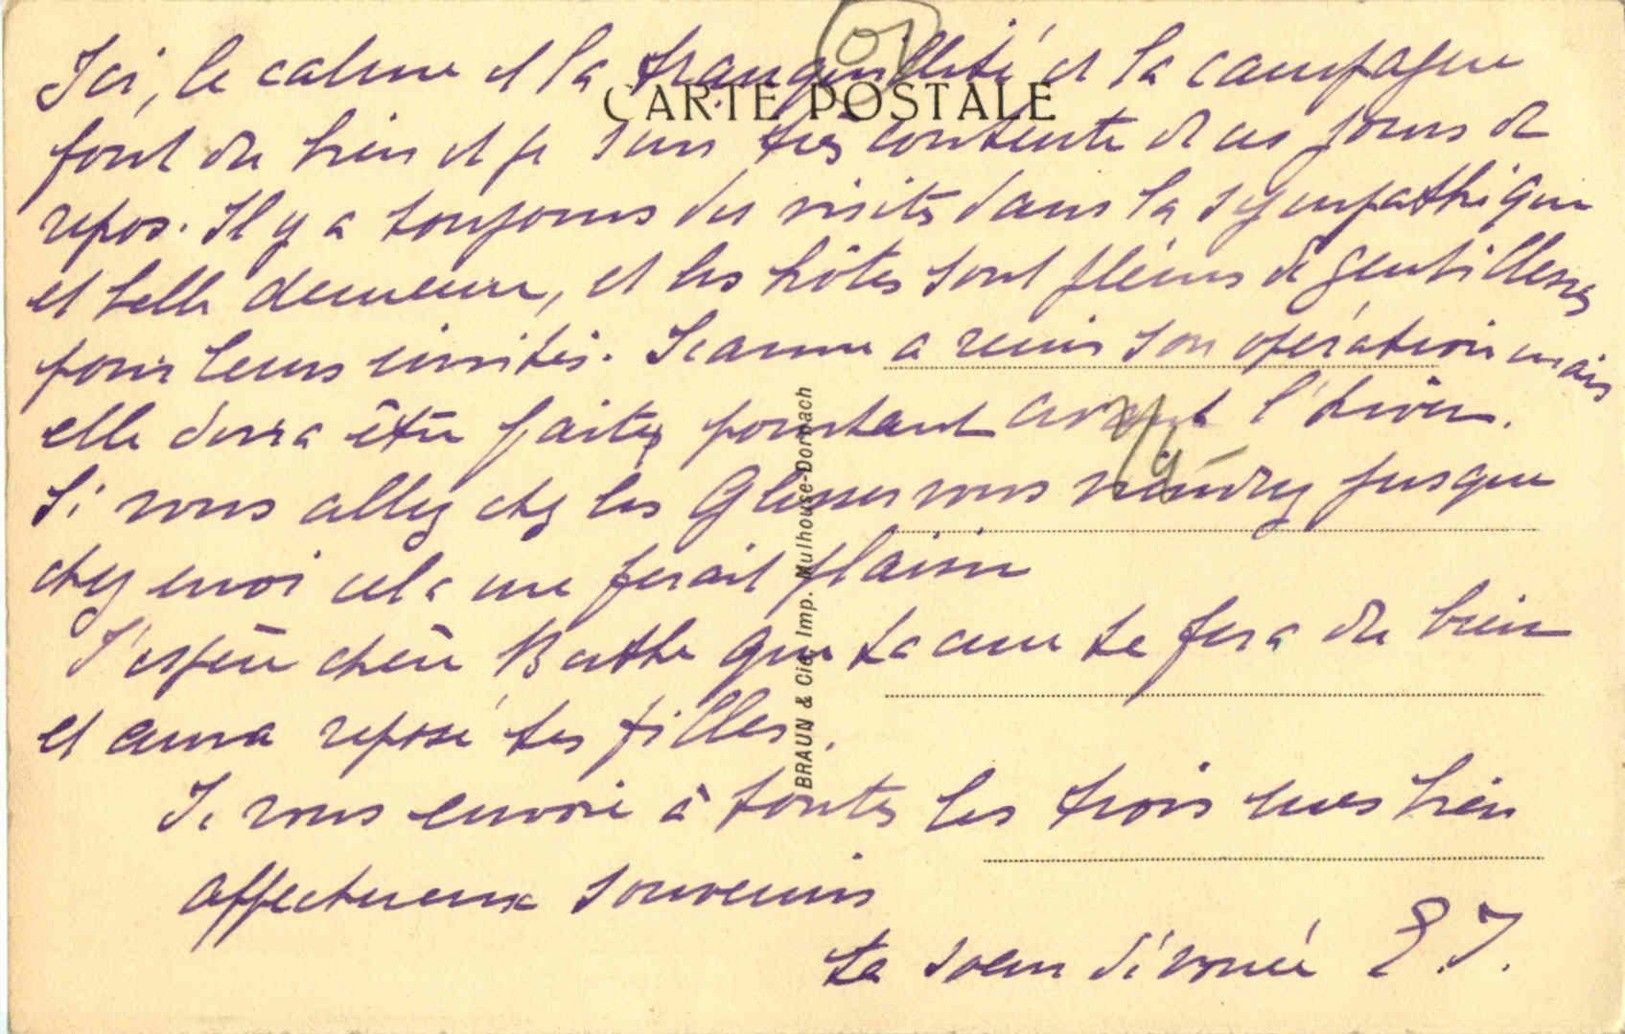 Ici, le calme et la tranquillité et la campagne
CARTE POSTALE
font du bien et je suis très contente de ces jours de
repos. Il y a toujours des visites dans la sympathique
et belle demeure, et les hôtes sont pleins de gentillesses
pour leurs invités. Jeanne a remis son opération mais
elle devra être faite, pourtant avant l'hiver.
Si vous allez chez les vous viendrez jusque
chez moi cela me ferait plaisir
J'espère chère Berthe que ta cure te fera du bien
et aura reposé tes filles.
Je vous envoie à toutes les trois mes bien
affectueux souvenirs
ta soeur dévouée E.J.
BRAUN & Cie, Imp. Mulhouse-Dornach